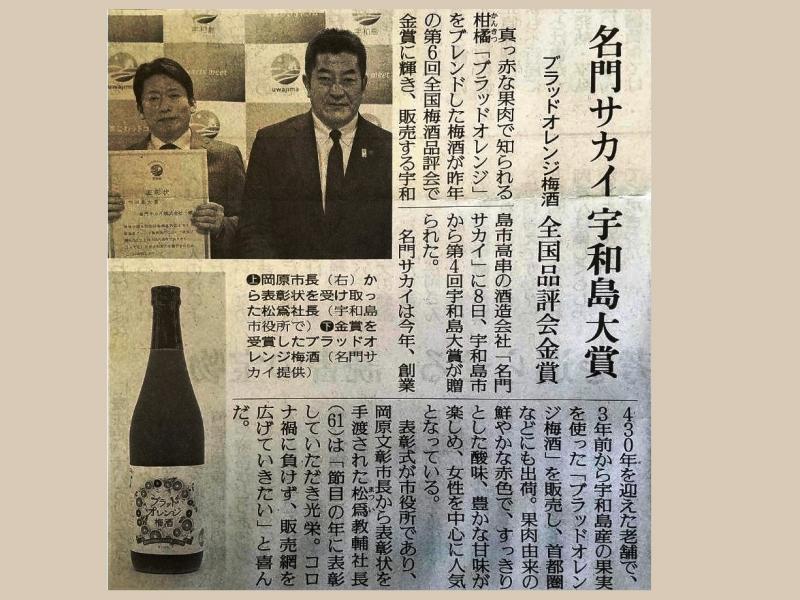 名門サカイ 宇和島大賞
ブラッドオレンジ梅酒 全国品評会金賞
真っ赤な果肉で知られる
柑橘「ブラッドオレンジ」
かんきつ
をブレンドした梅酒が昨年
の第6回全国梅酒品評会で
金賞に輝き、販売する宇和
島市高串の酒造会社「名門
サカイ」に8日、宇和島市
から第4回宇和島大賞が贈
られた。
名門サカイは今年、創業
430年を迎えた老舗で、
3年前から宇和島産の果実
を使った「ブラッドオレン
ジ梅酒」を販売し、首都圏
などにも出荷。果肉由来の
鮮やかな赤色で、すっきり
とした酸味、豊かな甘味が
楽しめ、女性を中心に人気
となっている。
表彰式が市役所であり、
岡原文彰市長から表彰状を
手渡された松爲教輔社長
まつい
(61)は「節目の年に表彰
していただき光栄。コロ
ナ禍に負けず、販売網を
広げていきたい」と喜ん
だ。
上岡原市長(右)か
ら表彰状を受け取っ
た松爲社長(宇和島
市役所で)下金賞を
受賞したブラッドオ
レンジ梅酒(名門サ
カイ提供)
uwajima
表彰状
ブラッド
オレンジ
梅酒